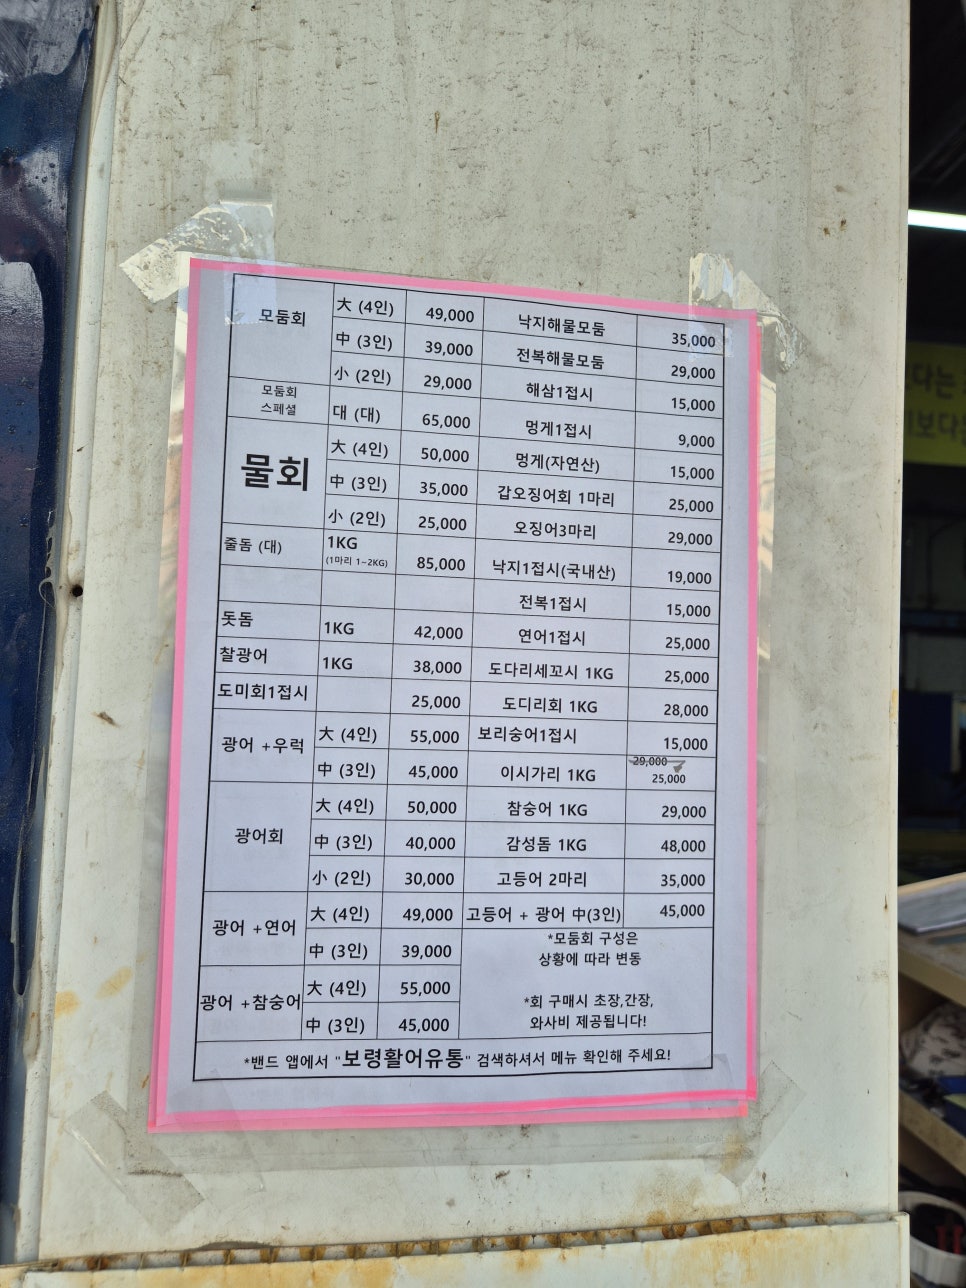 모둠회
大 (4인) 49,000
中 (3인) 39,000
小 (2인) 29,000
모둠회
스페셜
대 (대) 65,000
물회
大 (4인) 50,000
中 (3인) 35,000
小 (2인) 25,000
줄돔 (대) 1KG
(1마리 1~2KG)
85,000
돗돔 1KG 42,000
찰광어 1KG 38,000
도미회1접시 25,000
광어 +우럭
大 (4인) 55,000
中 (3인) 45,000
광어회
大 (4인) 50,000
中 (3인) 40,000
小 (2인) 30,000
광어 +연어
大 (4인) 49,000
中 (3인) 39,000
광어 +참숭어
大 (4인) 55,000
中 (3인) 45,000
낙지해물모둠 35,000
전복해물모둠 29,000
해삼1접시 15,000
멍게1접시 9,000
멍게(자연산) 15,000
갑오징어회 1마리 25,000
오징어3마리 29,000
낙지1접시(국내산) 19,000
전복1접시 15,000
연어1접시 25,000
도다리세꼬시 1KG 25,000
도디리회 1KG 28,000
보리숭어1접시 15,000
이시가리 1KG 29,000
25,000
참숭어 1KG 29,000
감성돔 1KG 48,000
고등어 2마리 35,000
고등어 + 광어 中(3인) 45,000
*모둠회 구성은
상황에 따라 변동
*회 구매시 초장,간장,
와사비 제공됩니다!
*밴드 앱에서 "보령활어유통" 검색하셔서 메뉴 확인해 주세요!
다는
보다는